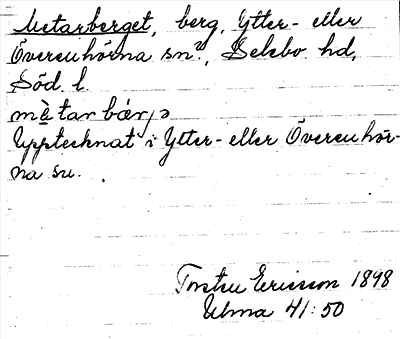 Metarberget, berg, Ytter- eller
Överenhörna sn?, Selebo hd,
Söd. l.
mètarbærjə
Upptecknat i Ytter- eller Överenhör-
na sn.
Torsten Ericsson 1898
Ulma 41:50